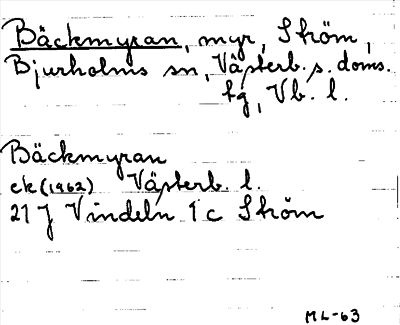 Bäckmyran, myr, Ström,
Bjurholms sn, Västerb. s. doms.
tg, Vb. l.
Bäckmyran
ek (1962) Västerb. l.
21 J Vindeln 1 c Ström
ML-63